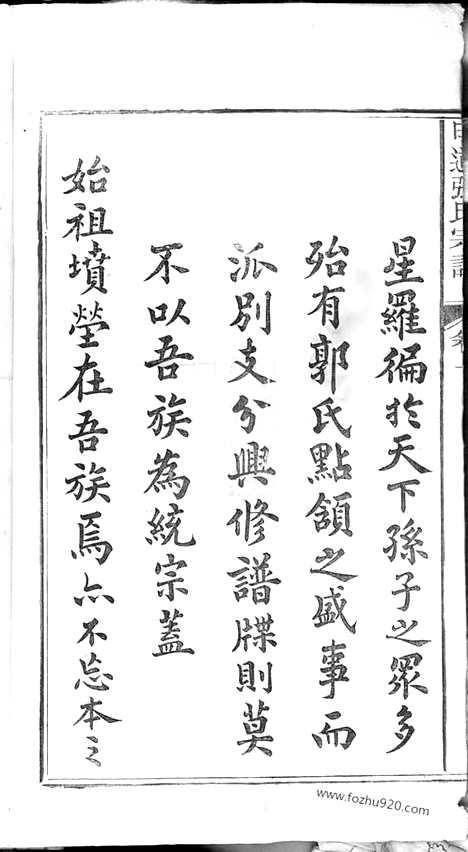 星羅徧於天下孫子之眾多
殆有郭氏點頷之盛事而
派別支分興修譜牒則莫
不以吾族為統宗蓋
始祖墳塋在吾族焉亦不忘本之
張氏宗譜
www.fozhu920.com